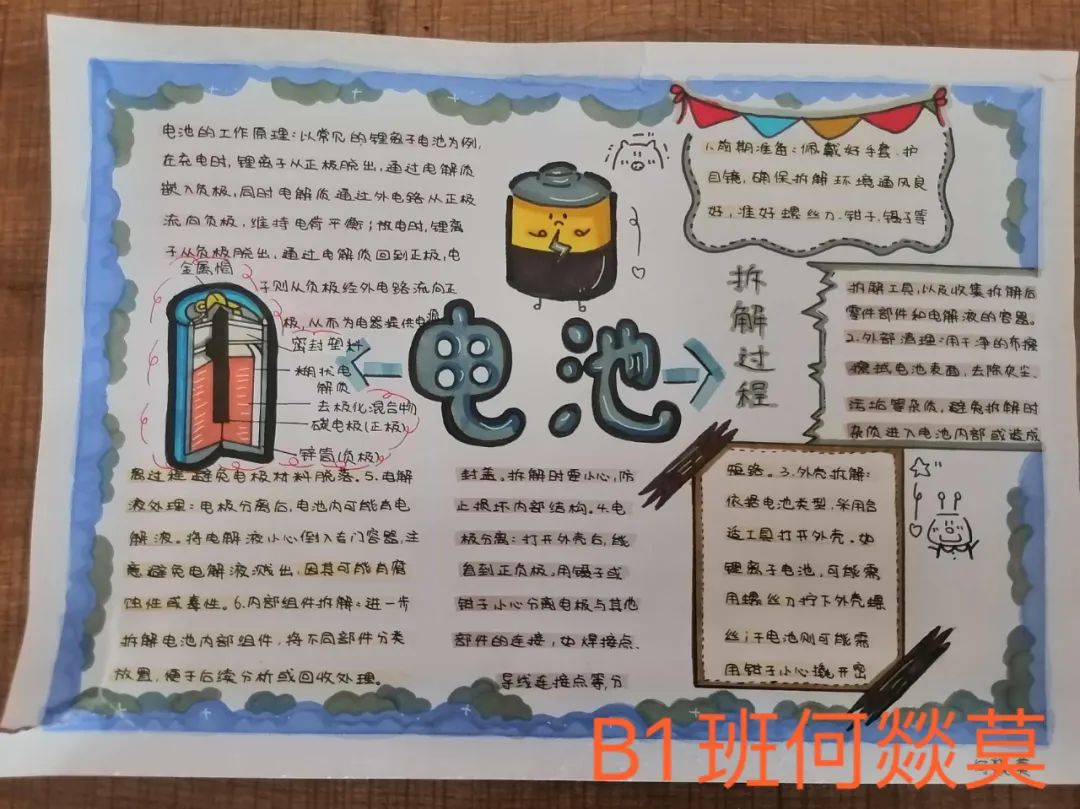 电池的工作原理：以常见的锂离子电池为例，
在充电时，锂离子从正极脱出，通过电解质
嵌入负极，同时电解质通过外电路从正极
流向负极，维持电荷平衡；放电时，锂离
子从负极脱出，通过电解质回到正极，电
子则从负极经外电路流向正
极，从而为电器提供电源
金属帽
密封塑料
糊状电
解质
去极化混合物
碳电极(正极)
锌筒(负极)
电池
拆解过程
1.前期准备：佩戴好手套、护
目镜，确保拆解环境通风良
好，准好螺丝刀、钳子、镊子等
拆解工具，以及收集拆解后
零件部件和电解液的容器。
2.外部清理：用干净的布擦
擦拭电池表面，去除灰尘、
污垢等杂质，避免拆解时
杂质进入电池内部或造成
短路。3.外壳拆解：
依据电池类型，采用合
适工具打开外壳。如
锂离子电池，可能需
用螺丝刀拧下外壳螺
丝；干电池则可能需
用钳子小心撬开密
封盖。拆解时要小心，防
止损坏内部结构。4.电
极分离：打开外壳后，能
看到正负极。用镊子或
钳子小心分离电极与其他
部件的连接，如焊接点、
导线连接点等，分
离过程避免电极材料脱落。5.电解
液处理：电极分离后，电池内可能有电
解液。将电解液小心倒入专门容器，注
意避免电解液溅出，因其可能有腐
蚀性或毒性。6.内部组件拆解：进一步
拆解电池内部组件，将不同部件分类
放置，便于后续分析或回收处理。
B1班何燚莫